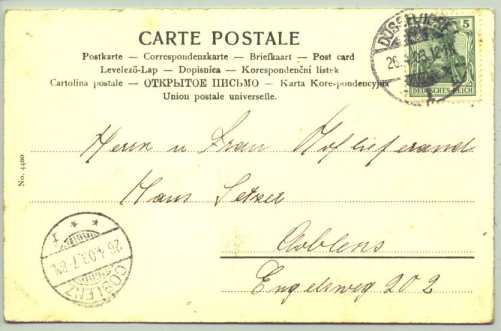 CARTE POSTALE
Postkarte — Correspondenzkarte — Briefkaart — Post card
Levelező-Lap — Dopisnica — Korespondenční listek
Cartolina postale — ОТКРЫТОЕ ПИСЬМО — Karta Kore-pondencyjna
Union postale universelle.
5
DEUTSCHES REICH
No. 4400
Herrn u Frau Hoflieferand
Hans Setzer
Coblens
Engelsweg 202
26.4.03.7-8
COBLENZ